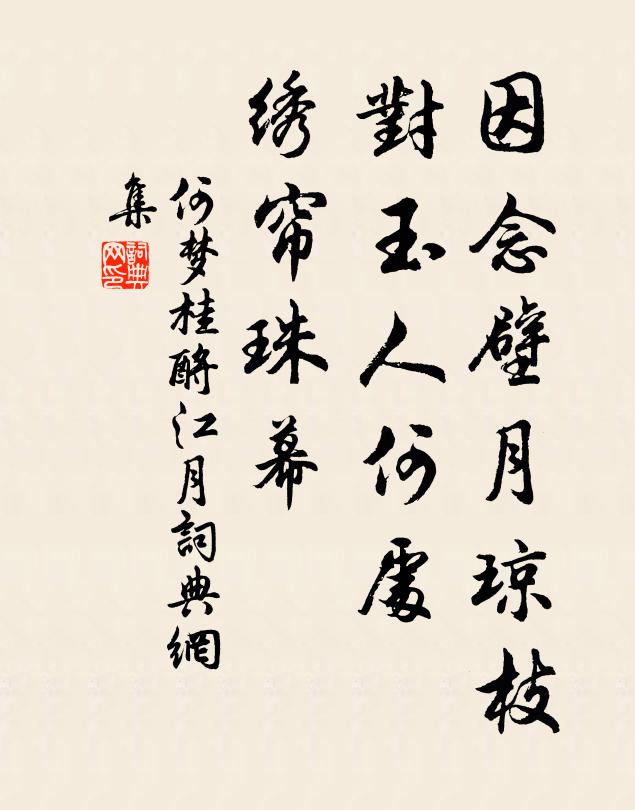 因念壁月琼枝
對玉人何處
绣帘珠幕
何梦桂酹江月詞典網
集
詞典
网印